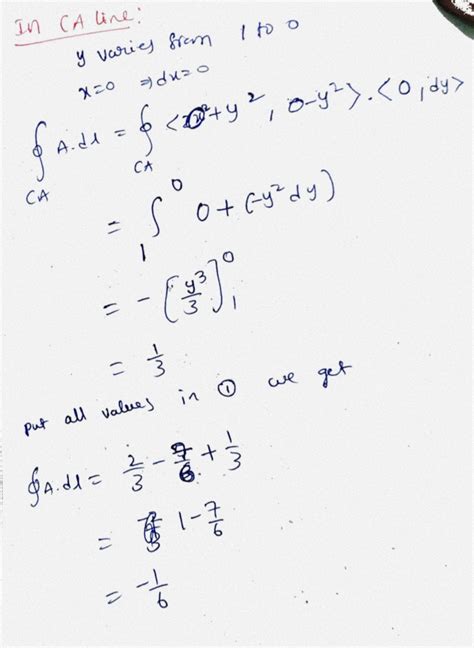 In CA line:
y varies from 1 to 0
x=0 ⇒dx=0
∮_CA A.dl = ∮_CA <0²+y², 0-y²>.<0, dy>
= ∫_1^0 0+(-y²dy)
= -[y³/3]_1^0
= 1/3
put all values in ① we get
∮A.dl = 2/3 - 7/6 + 1/3
= 1 - 7/6
= -1/6